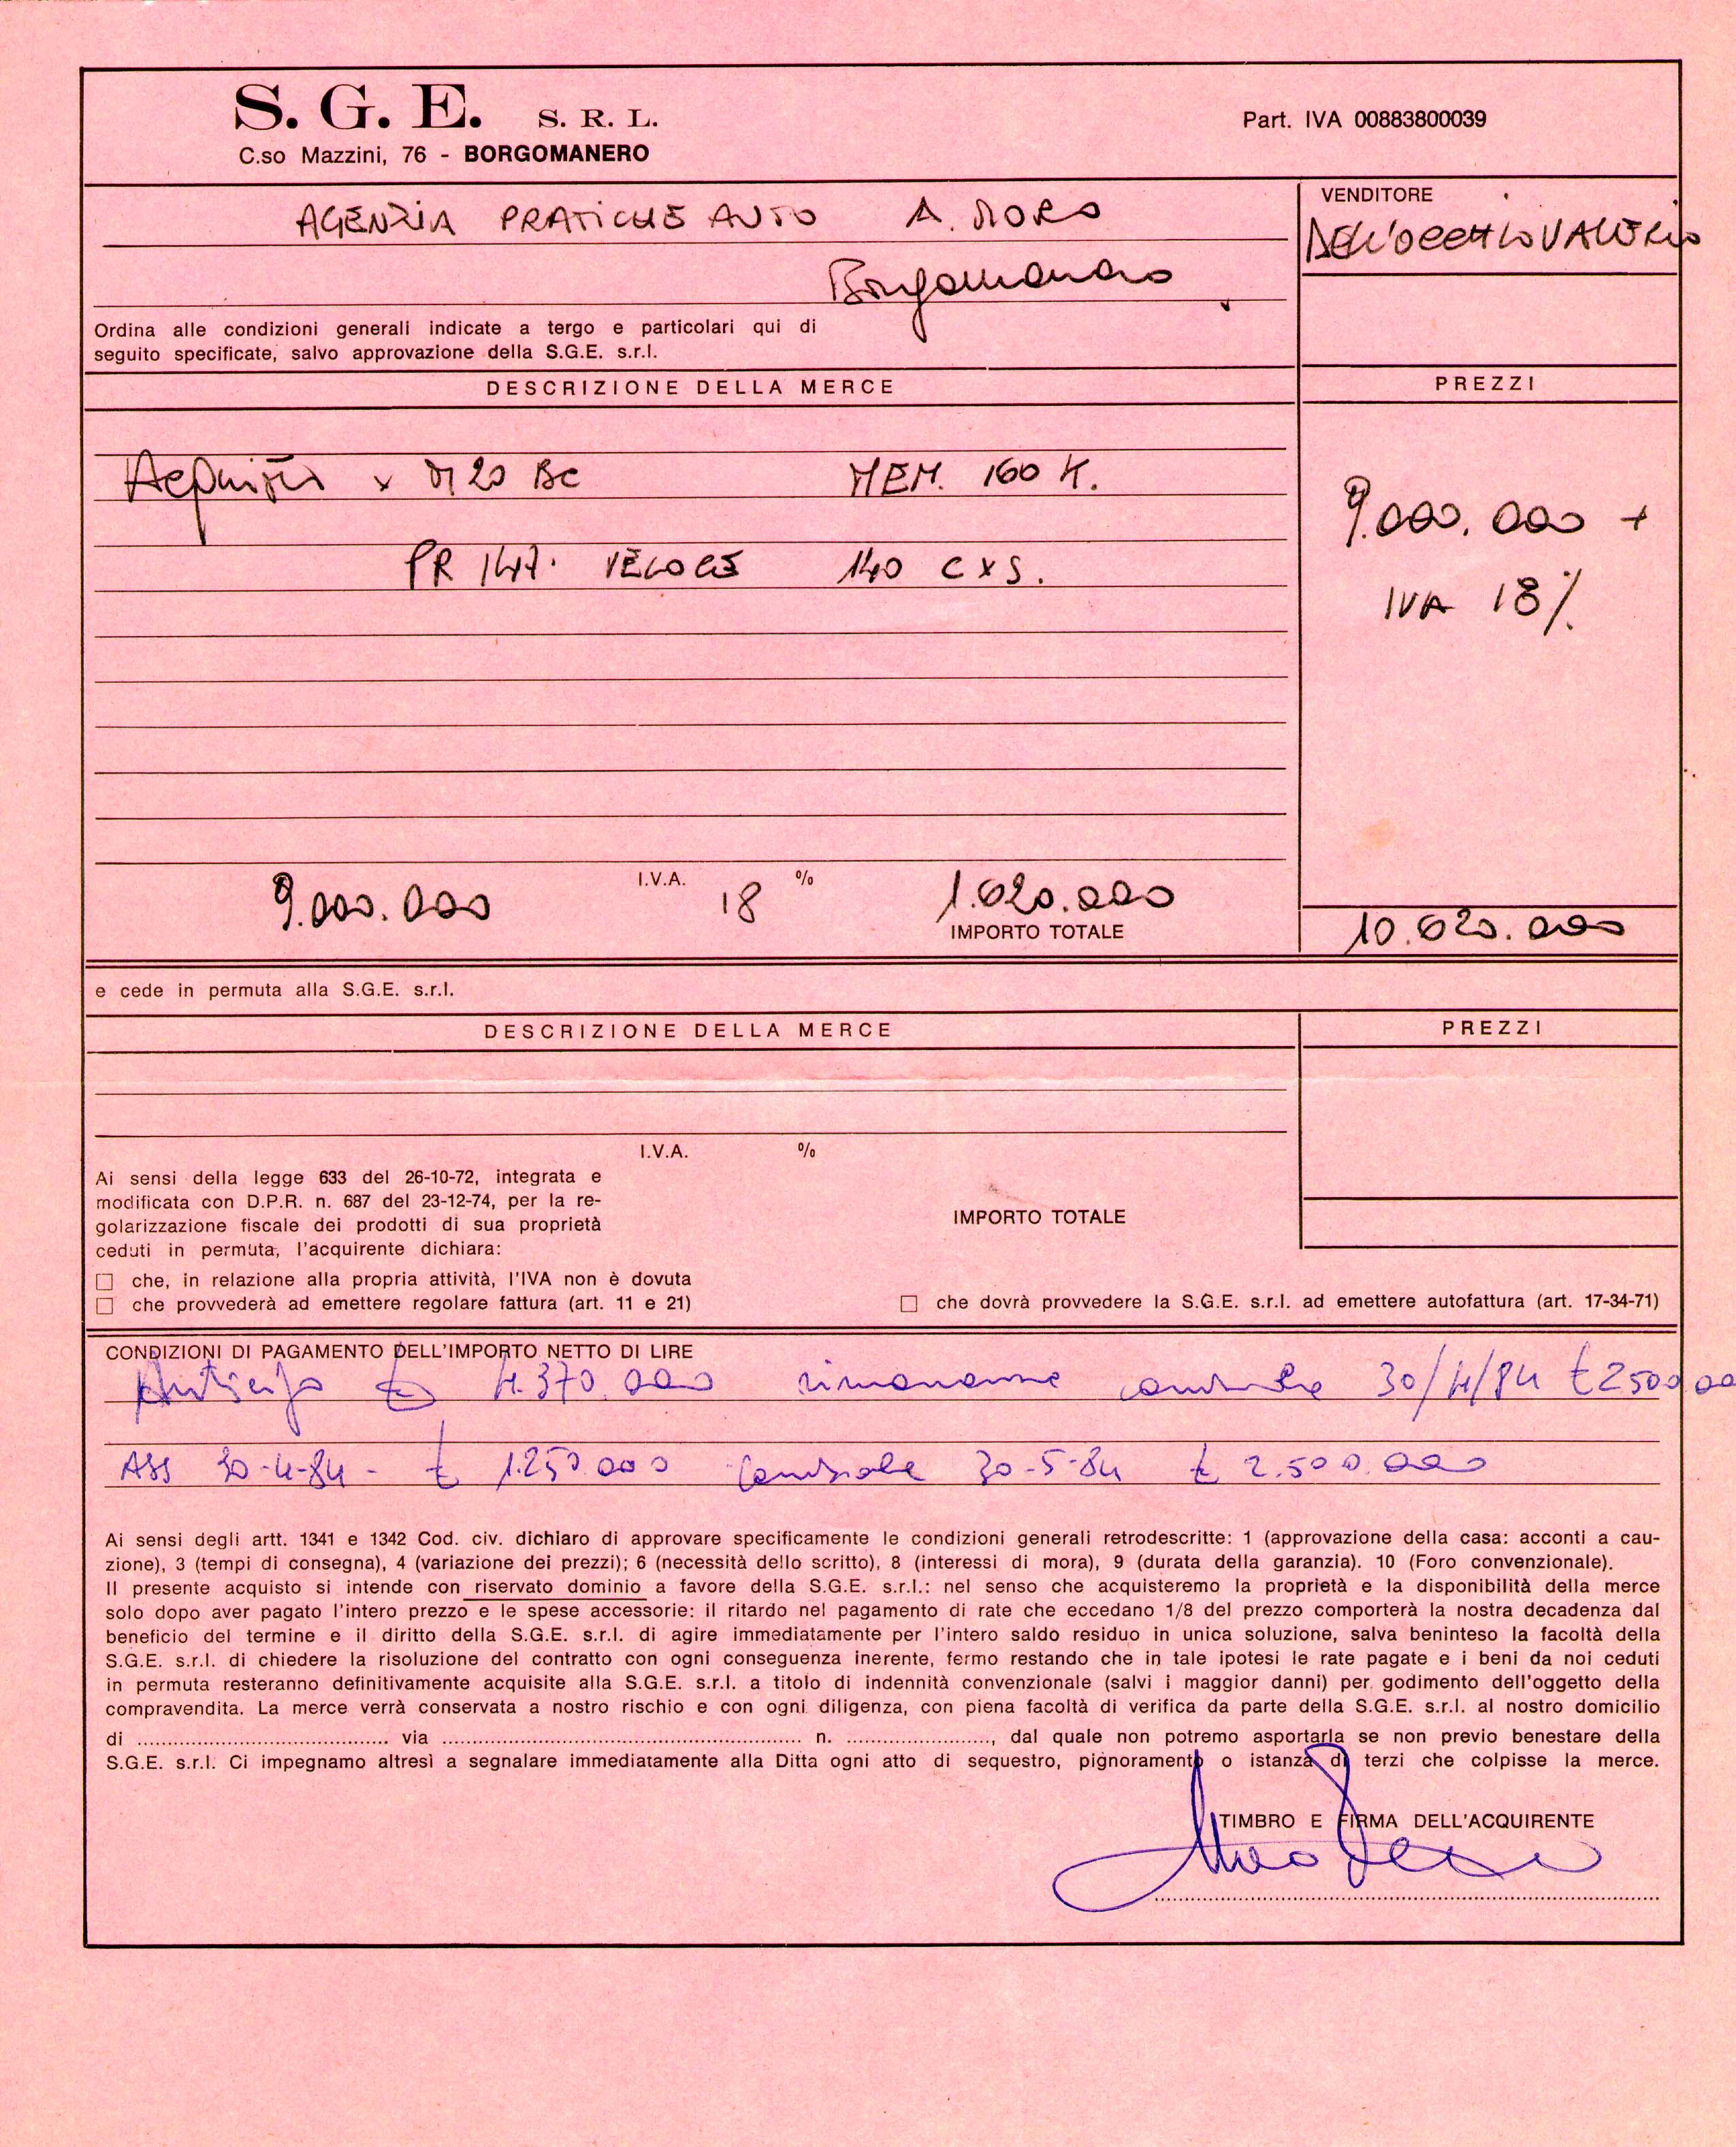 S. G. E. S. R. L.
Part. IVA 00883800039
C.so Mazzini, 76 - BORGOMANERO
AGENZIA PRATICHE AUTO A. MORO
VENDITORE
DELL'OCCHIO VALERIO
Borgomanero
Ordina alle condizioni generali indicate a tergo e particolari qui di
seguito specificate, salvo approvazione della S.G.E. s.r.l.
DESCRIZIONE DELLA MERCE
PREZZI
x M20 BC MEM. 160 K.
9.000.000 +
PR 147. VELOCE 140 CXS.
IVA 18%
9.000.000 I.V.A. 18 % 1.620.000
IMPORTO TOTALE
10.620.000
e cede in permuta alla S.G.E. s.r.l.
DESCRIZIONE DELLA MERCE
PREZZI
I.V.A. %
Ai sensi della legge 633 del 26-10-72, integrata e
modificata con D.P.R. n. 687 del 23-12-74, per la re-
golarizzazione fiscale dei prodotti di sua proprietà
ceduti in permuta, l'acquirente dichiara:
IMPORTO TOTALE
□ che, in relazione alla propria attività, l'IVA non è dovuta
□ che provvederà ad emettere regolare fattura (art. 11 e 21)
□ che dovrà provvedere la S.G.E. s.r.l. ad emettere autofattura (art. 17-34-71)
CONDIZIONI DI PAGAMENTO DELL'IMPORTO NETTO DI LIRE
Anticipo £ 4.370.000 rimanenze cambiale 30/4/84 £ 2500.00
ASS 30-4-84 - £ 1.250.000 cambiale 30-5-84 £ 2.500.000
Ai sensi degli artt. 1341 e 1342 Cod. civ. dichiaro di approvare specificamente le condizioni generali retrodescritte: 1 (approvazione della casa: acconti a cau-
zione), 3 (tempi di consegna), 4 (variazione dei prezzi); 6 (necessità dello scritto), 8 (interessi di mora), 9 (durata della garanzia). 10 (Foro convenzionale).
Il presente acquisto si intende con riservato dominio a favore della S.G.E. s.r.l.: nel senso che acquisteremo la proprietà e la disponibilità della merce
solo dopo aver pagato l'intero prezzo e le spese accessorie: il ritardo nel pagamento di rate che eccedano 1/8 del prezzo comporterà la nostra decadenza dal
beneficio del termine e il diritto della S.G.E. s.r.l. di agire immediatamente per l'intero saldo residuo in unica soluzione, salva beninteso la facoltà della
S.G.E. s.r.l. di chiedere la risoluzione del contratto con ogni conseguenza inerente, fermo restando che in tale ipotesi le rate pagate e i beni da noi ceduti
in permuta resteranno definitivamente acquisite alla S.G.E. s.r.l. a titolo di indennità convenzionale (salvi i maggior danni) per godimento dell'oggetto della
compravendita. La merce verrà conservata a nostro rischio e con ogni diligenza, con piena facoltà di verifica da parte della S.G.E. s.r.l. al nostro domicilio
di ........................................ via .......................................................... n. ......................., dal quale non potremo asportarla se non previo benestare della
S.G.E. s.r.l. Ci impegnamo altresì a segnalare immediatamente alla Ditta ogni atto di sequestro, pignoramento o istanza di terzi che colpisse la merce.
TIMBRO E FIRMA DELL'ACQUIRENTE